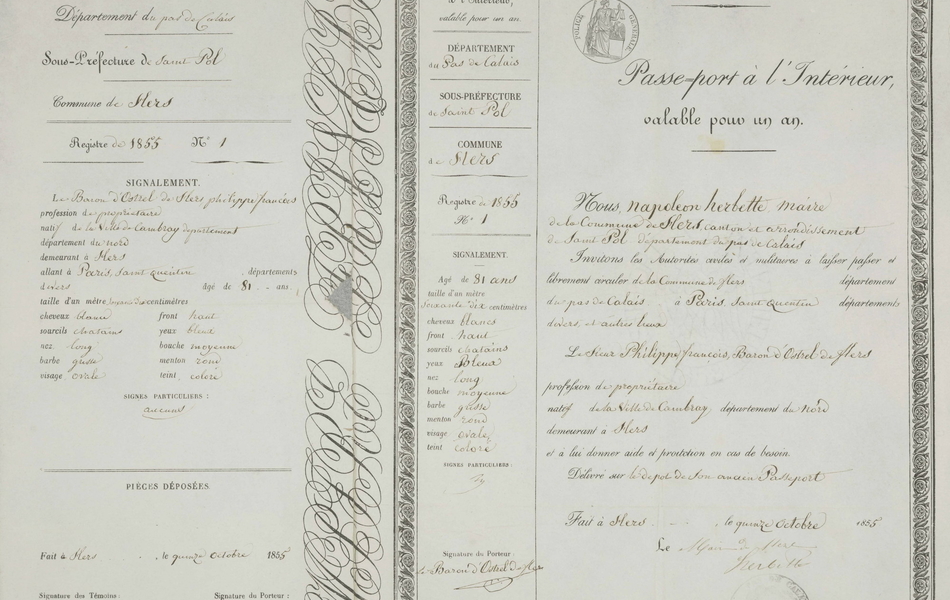 Département du pas de Calais
Sous-Préfecture de Saint Pol
Commune de Flers
Registre de 1855 N° 1
SIGNALEMENT.
Le Baron d'Ostrel de Flers philippe françois
profession de propriétaire
natif de la Ville de Cambray département
département du nord
demeurant à Flers
allant à Paris, Saint quentin départements
divers Agé de 81 ans.
taille d'un mètre soixante dix centimètres
cheveux blancs front haut
sourcils chatains yeux bleux
nez long bouche moyenne
barbe grisse menton rond
visage ovale teint coloré
SIGNES PARTICULIERS :
aucuns
PIÈCES DÉPOSÉES
Fait à Flers le quinze octobre 1855
Signature des Témoins : Signature du Porteur :
à l'Intérieur,
valable pour un an.
DÉPARTEMENT
du Pas de Calais
SOUS-PRÉFECTURE
de Saint Pol
COMMUNE
de Flers
Registre de 1855
N° 1
SIGNALEMENT.
Agé de 81 ans
taille d'un mètre
soixante dix centimètres
cheveux blancs
front haut
sourcils chatains
yeux Bleux
nez long
bouche moyenne
barbe grisse
menton rond
visage ovale
teint coloré
SIGNES PARTICULIERS :
Signature du Porteur :
Le Baron d'Ostrel de Flers
POLICE GÉNÉRALE
Passe-port à l'Intérieur,
valable pour un an.
Nous, napoleon herbette maire
de la Commune de Flers, canton et arrondissement
de Saint Pol département du pas de Calais
Invitons les Autorités civiles et militaires à laisser passer et
librement circuler de la Commune de flers département
du pas de Calais à Paris, Saint quentin départements
divers, et autres lieux
Le Sieur Philippe françois, Baron d'Ostrel de flers
profession de propriétaire
natif de la Ville de Cambray département du nord
demeurant à Flers
et à lui donner aide et protection en cas de besoin.
Délivré sur le depot de son ancien Passeport
Fait à Flers le quinze Octobre 1855
Le Maire de flers
Herbette